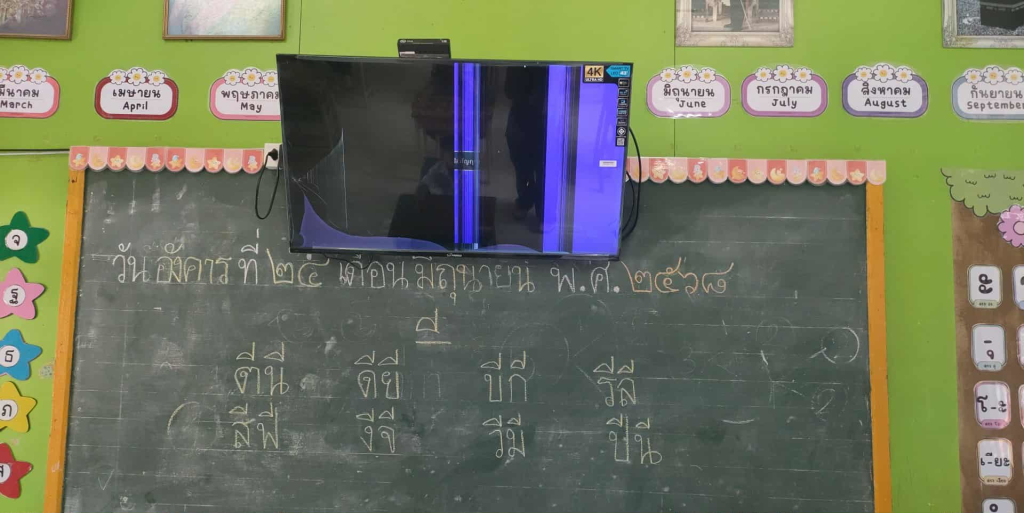 มีนาคม
March
เมษายน
April
พฤษภาคม
May
มิถุนายน
June
กรกฎาคม
July
สิงหาคม
August
กันยายน
September
4K
ULTRA HD
วันอังคาร ที่ ๒๔ เดือน มิถุนายน พ.ศ. ๒๕๖๘
ตีนี ดียี บีกี รีลี
สีฟี งีจี วีมี ปีนี
จ
ธ
ภ